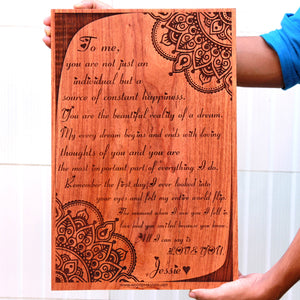 To me,
you are not just an
individual but a
source of constant happiness.
You are the beautiful reality of a dream.
My every dream begins and ends with loving
thoughts of you and you are
the most important part of everything I do.
Remember the first day I ever looked into
your eyes and felt my entire world flip.
The moment when I saw you I fell in
love and you smiled because you knew.
All I can say is
I LOVE YOU
Jessie♥